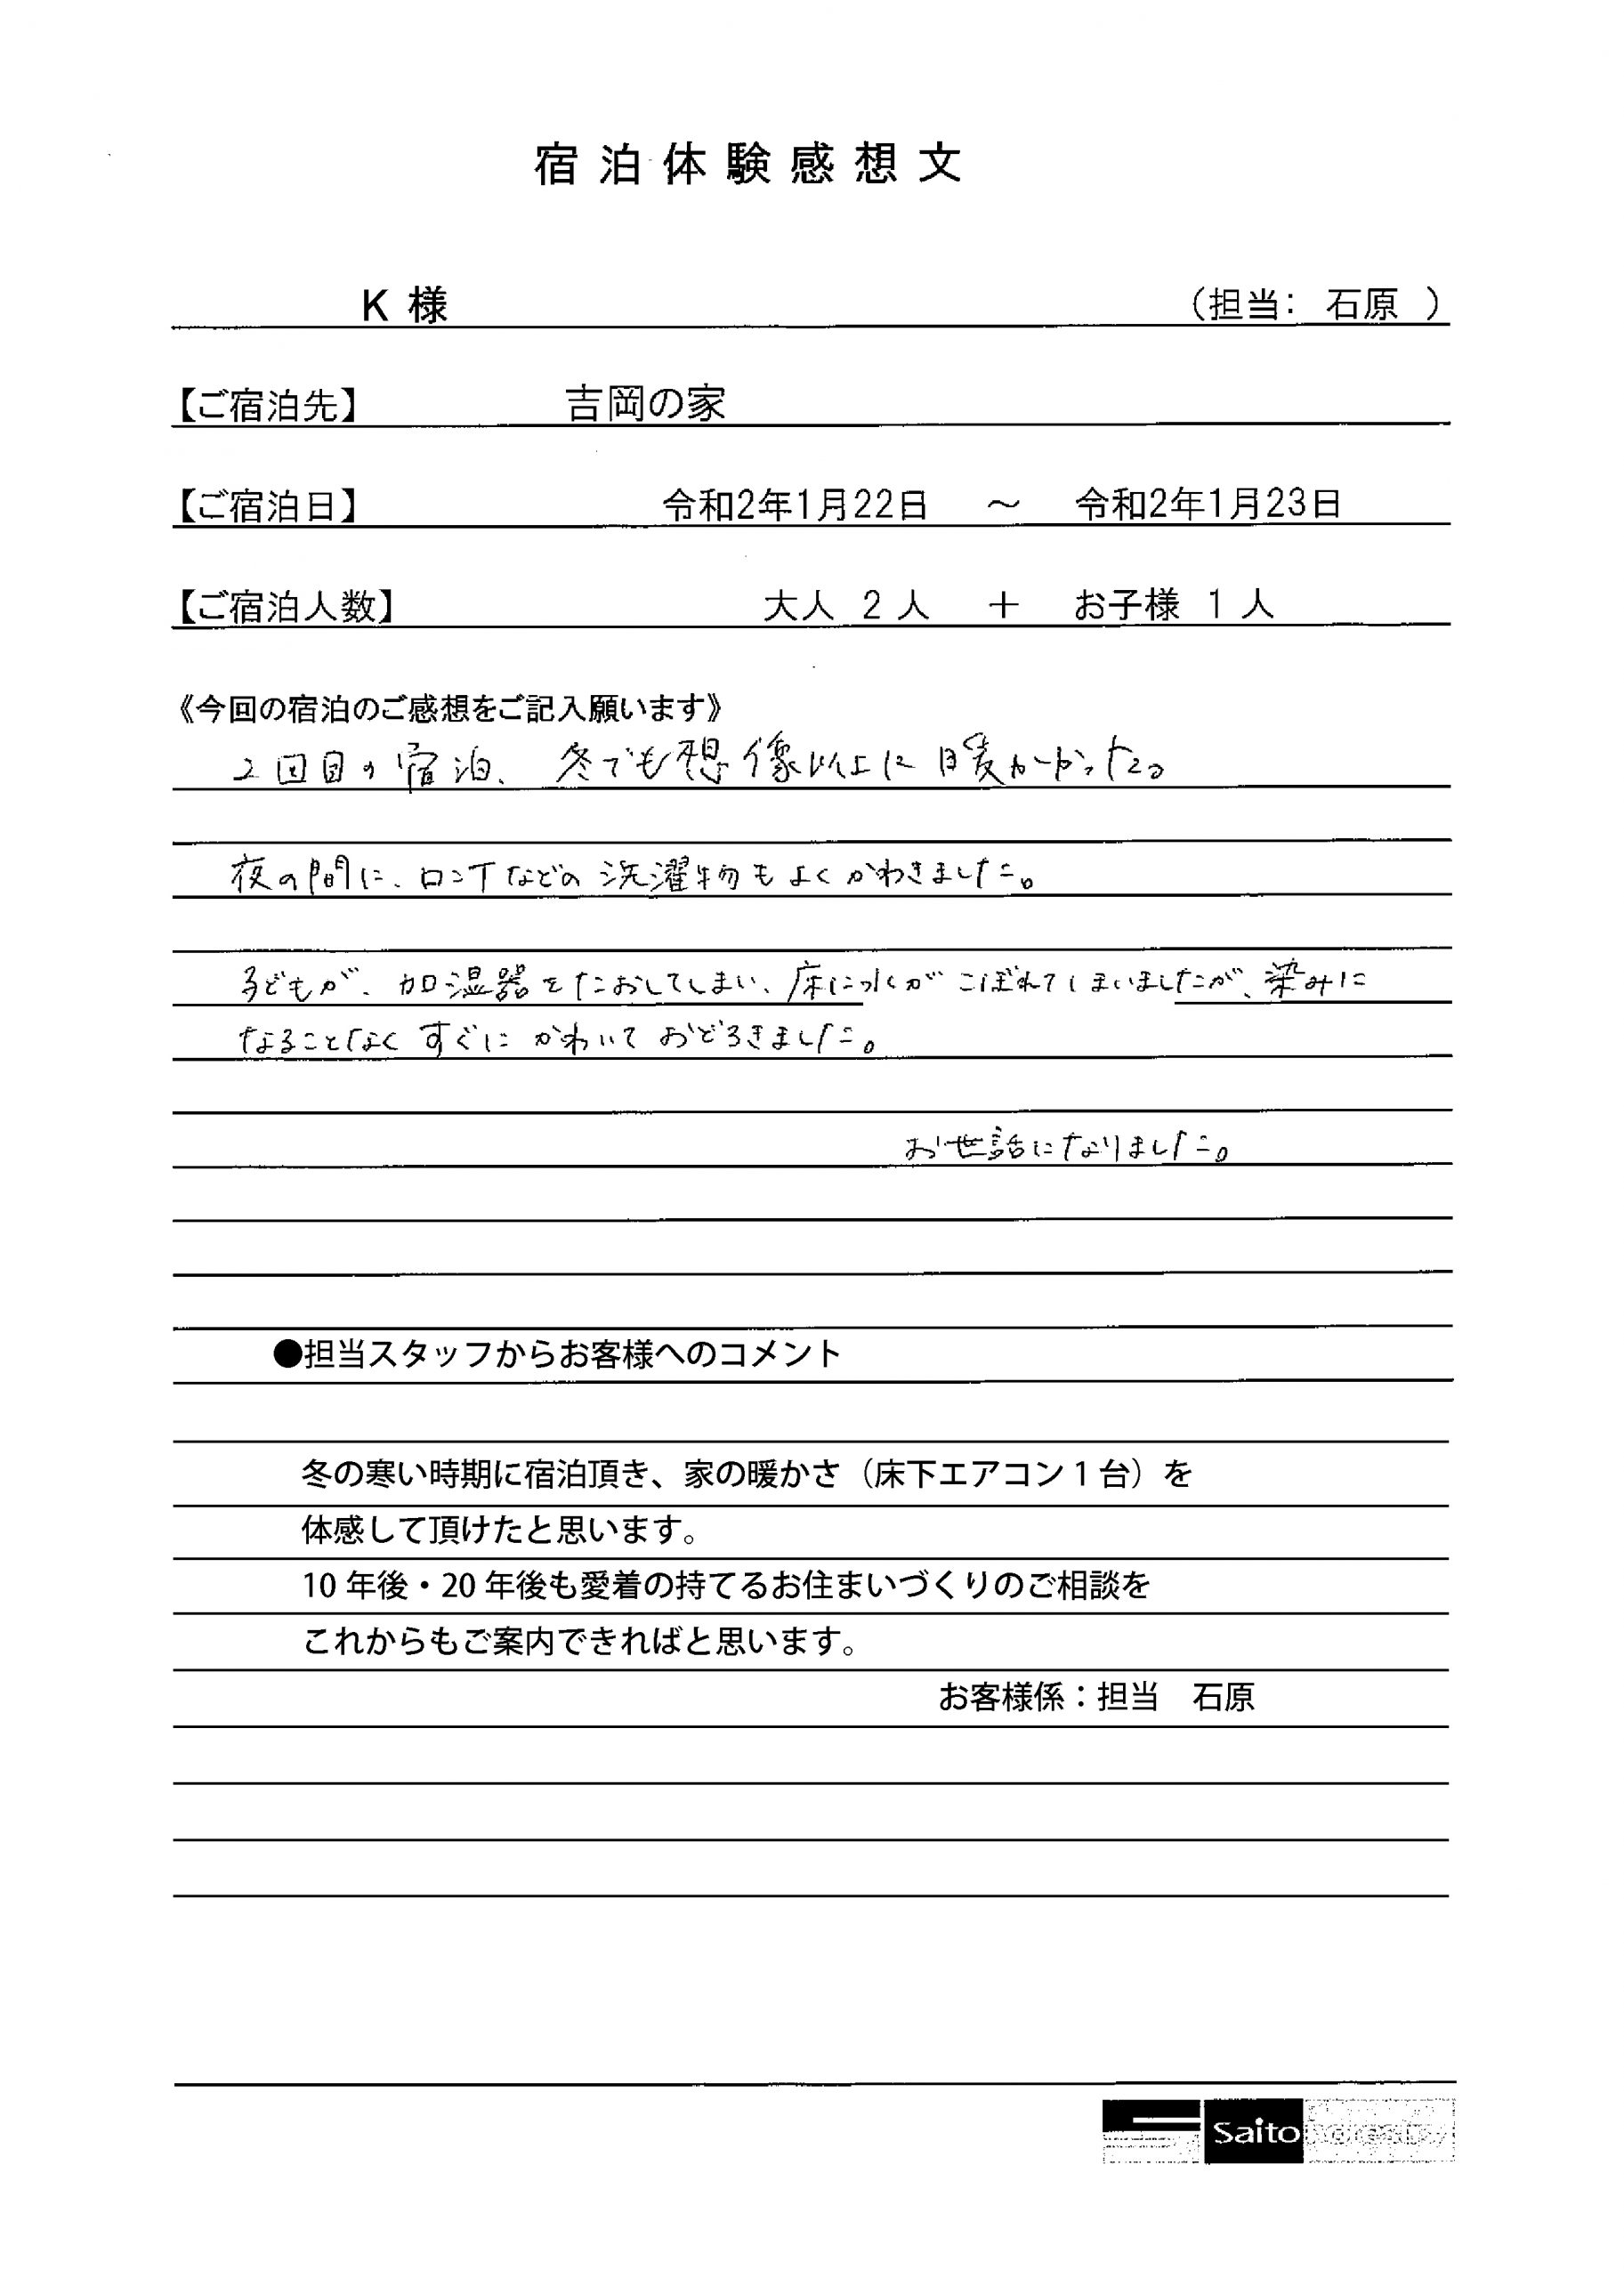 宿泊体験感想文
K 様 （担当： 石原 ）
【ご宿泊先】 吉岡の家
【ご宿泊日】 令和2年1月22日 ～ 令和2年1月23日
【ご宿泊人数】 大人 2 人 ＋ お子様 1 人
《今回の宿泊のご感想をご記入願います》
2回目の宿泊、冬でも想像以上に暖かかった。
夜の間に、ロンTなどの洗濯物もよくかわきました。
子どもが、加湿器をたおしてしまい、床に水がこぼれてしまいましたが、染みに
なることなくすぐにかわいておどろきました。
お世話になりました。
●担当スタッフからお客様へのコメント
冬の寒い時期に宿泊頂き、家の暖かさ（床下エアコン1台）を
体感して頂けたと思います。
10年後・20年後も愛着の持てるお住まいづくりのご相談を
これからもご案内できればと思います。
お客様係：担当　石原
Saito